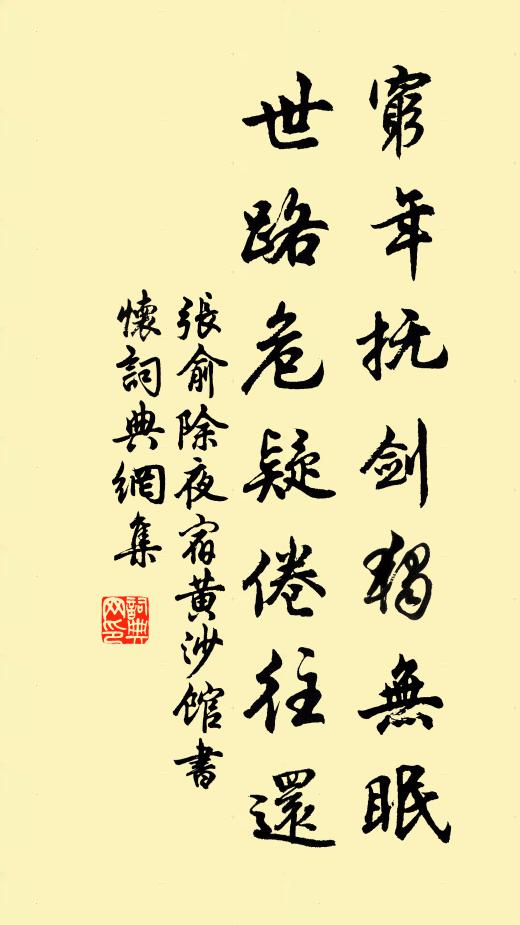 窮年抚剑獨無眠
世路危疑倦往還
張俞除夜宿黄沙館書
懷詞典網集
詞典
网印